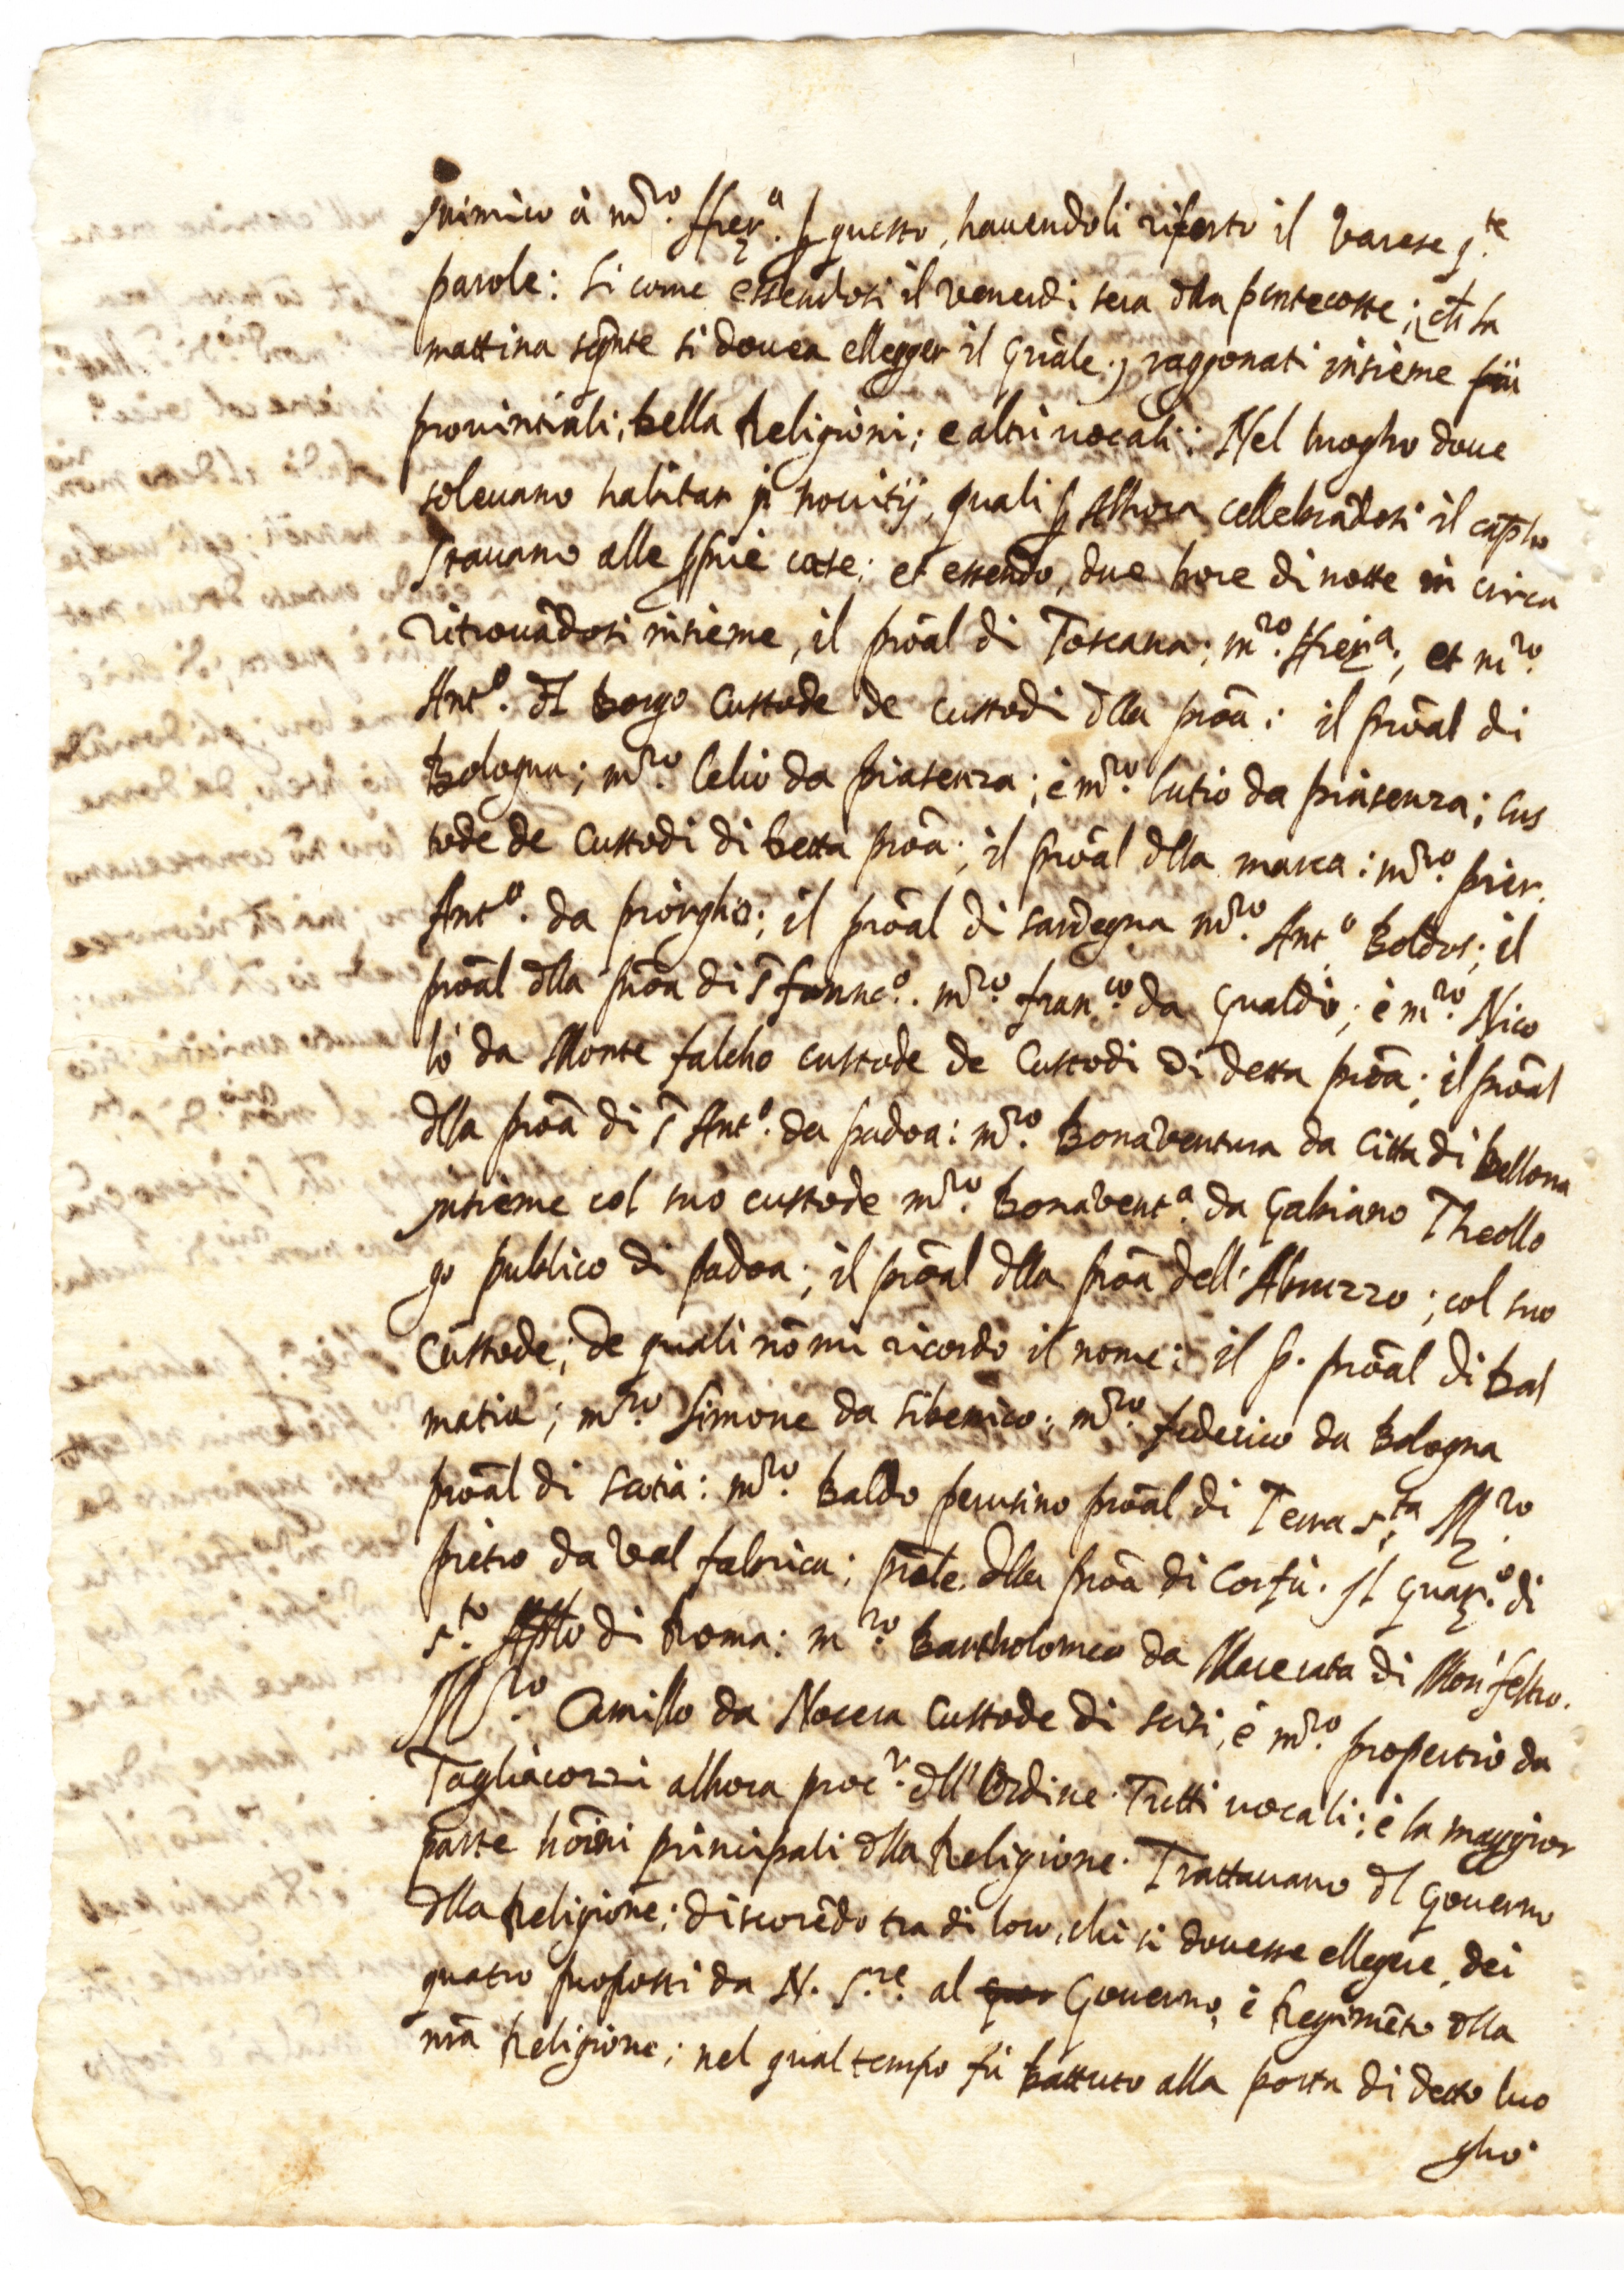 inimico à m.ro Hier.a p questo, hauendoli riferto il Varese q.te
parole: si come essendosi il venerdi sera dlla pentecoste; ch la
mattina segnte si douea ellegger il Gñale; raggonati insieme più
prouintiali, della Religioni; e altri uocali: Nel luogho doue
soleuano habitar i nouitij, quali p allhora cellebrādosi il caplo
stauano alle pprie case; et essendo, due hore di notte in circa
ritrouādosi insieme, il proāl di Toscana; m.ro Hier.a; et m.ro
Ant.o dl Borgo Custode de custodi dlla proā; il proāl di
Bologna; m.ro Celio da piasenza; è m.ro lutio da piasenza; Cus
tode de Custodi di detta proā; il proāl dlla marca: m.ro pier.
Ant.o da piorgho; il proāl di sardegna m.ro Ant.o Boldos; il
proāl dlla proā di S franc.o m.ro fran.co da Gualdo; è m.ro Nico
lò da Monte falcho custode de Custodi di detta proā; il proāl
dlla proā di S Ant.o da padoa: m.ro Bonaventura da Citta di Bellona
insieme col suo custode m.ro Bonavent.a da Gabiano Theollo
go publico di padoa; il proāl dlla proā dell'Abruzzo; col suo
Custode; de quali nō mi ricordo il nome: il p. proāl di Dal
matia; m.ro Simone da Sibenico; m.ro federico da Bologna
proāl di scotia: m.ro Baldo perusino proāl di Terra s.ta M.ro
pietro da Val fabrica; proāle dlla proā di Corfù. Il Guar.o di
s.to Apl̄o di Roma: m.ro Bartholomeo da Macerata di Mon'feltro.
M.ro Camillo da Nocera Custode di scisi, è m.ro propertio da
Tagliacozzi alhora proc.r dll'Ordine. Tutti uocali; è la maggior
parte hōini principali dlla Religione. Trattauano dl Gouerno
dlla Religione; discorēdo tra di loro, chi si douesse ellegere, dei
quatro proposti da N. S.re al Gouerno, è Regimēto dlla
nrā Religione; nel qual tempo fù battuto alla porta di detto luo
gho